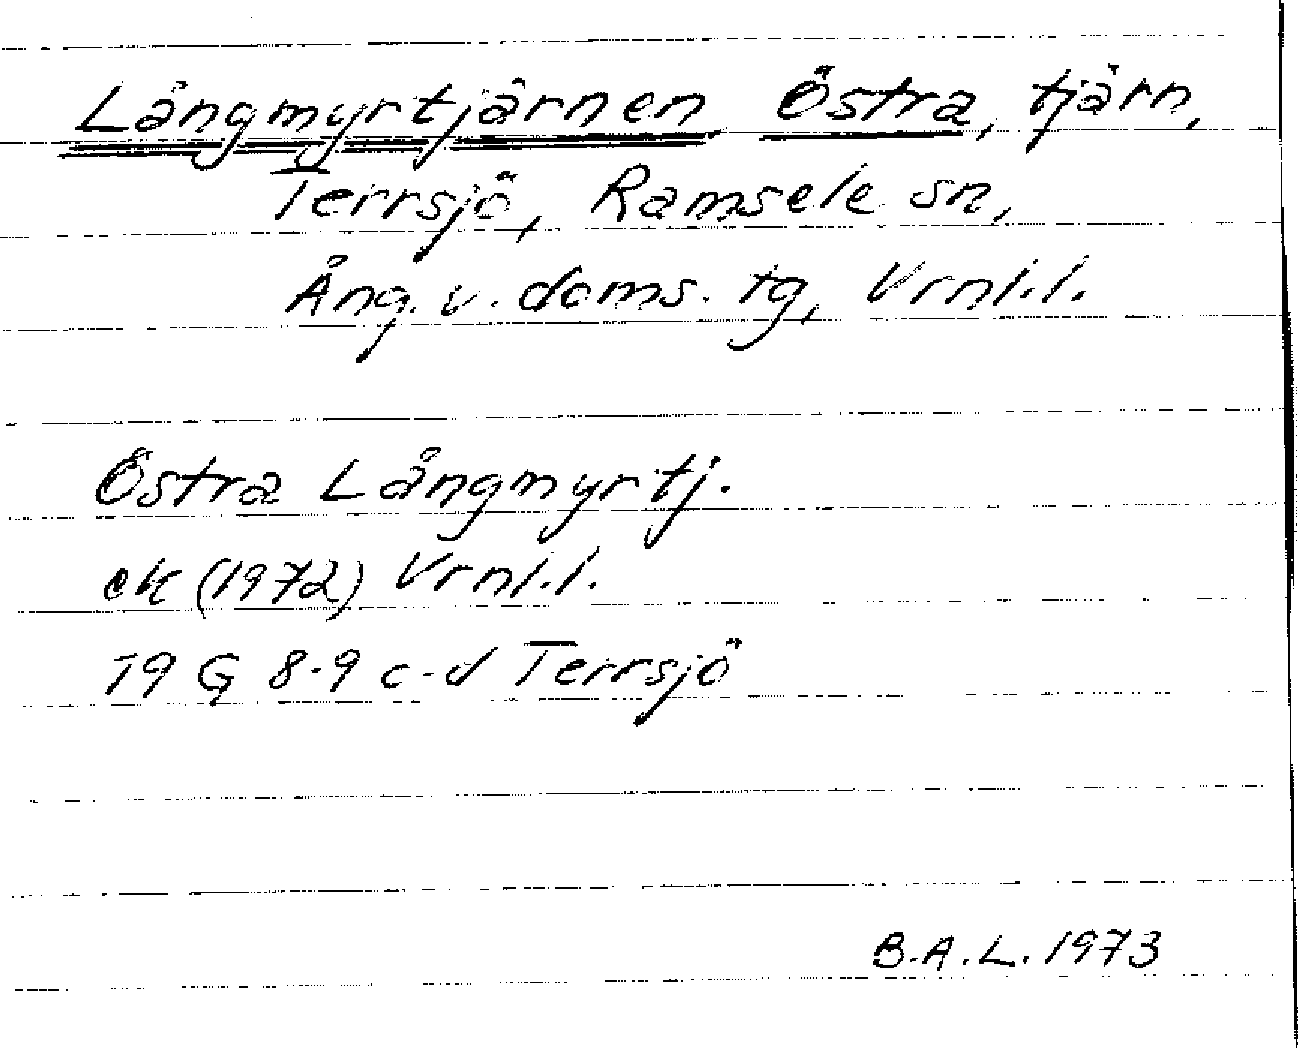 Långmyrtjärnen Östra, tjärn,
Terrsjö, Ramsele sn,
Ång. v. doms. tg, Vrnl.l.
Östra Långmyrtj.
ek (1972) Vrnl.l.
19 G 8-9 c-d Terrsjö
B.A.L. 1973